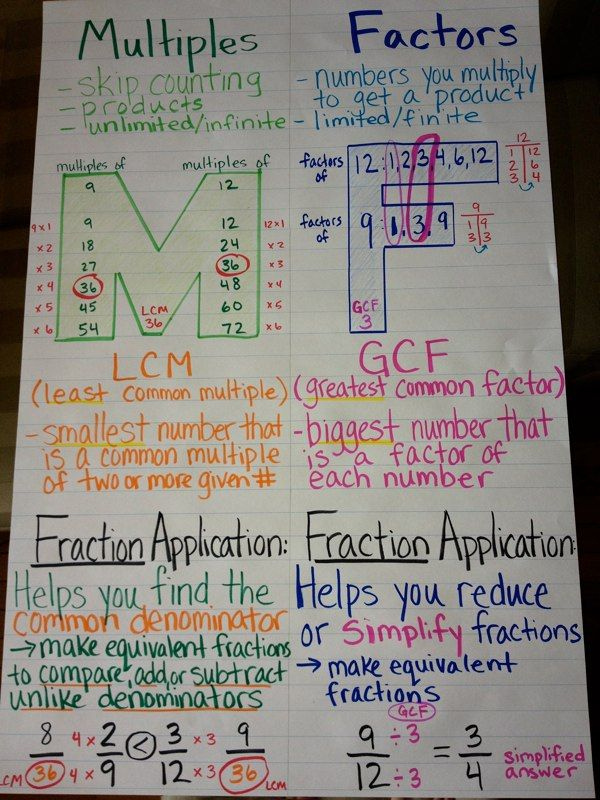 Multiples
- skip counting
- products
- unlimited/infinite
multiples of 9
multiples of 12
9x1 9
x2 18
x3 27
x4 36
x5 45
x6 54
LCM
36
12 12x1
24 x2
36 x3
48 x4
60 x5
72 x6
LCM
(least common multiple)
- smallest number that
is a common multiple
of two or more given #
Fraction Application:
Helps you find the
common denominator
→ make equivalent fractions
to compare, add, or subtract
unlike denominators
8 4 x 2 < 3 x 3 9
LCM 36 4 x 9 12 x 3 36 LCM
Factors
- numbers you multiply
to get a product
- limited/finite
factors of 12: 1, 2, 3, 4, 6, 12
12
1 12
2 6
3 4
factors of 9: 1, 3, 9
9
1 9
3 3
GCF
3
GCF
(greatest common factor)
- biggest number that
is a factor of
each number
Fraction Application:
Helps you reduce
or simplify fractions
→ make equivalent
fractions
GCF
9 ÷ 3 = 3
12 ÷ 3 4
simplified
answer